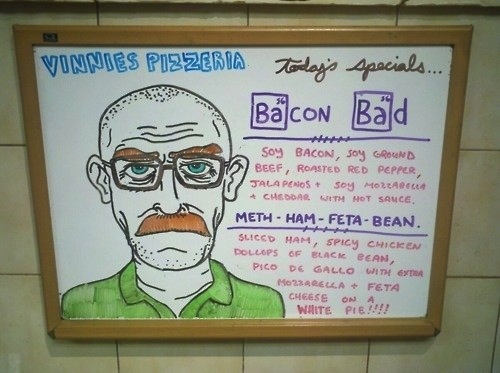 VINNIES PIZZERIA
Today's specials...
Ba56con Ba56d
SOY BACON, SOY GROUND
BEEF, ROASTED RED PEPPER,
JALAPENOS + SOY MOZZARELLA
+ CHEDDAR WITH HOT SAUCE.
METH - HAM - FETA - BEAN.
SLICED HAM, SPICY CHICKEN
DOLLOPS OF BLACK BEAN,
PICO DE GALLO WITH EXTRA
MOZZARELLA + FETA
CHEESE ON A
WHITE PIE!!!!